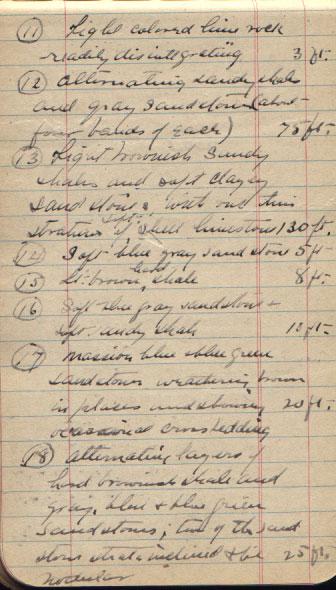 (11) Light colored lime rock
readily disintegrating 3 ft.
(12) Alternating sandy shale
and gray sandstone (about
four bands of each) 75 ft.
(13) Light brownish sandy
shales and soft clayey
sandstones with one thin
stratum of shell limestone 130 ft.
(14) Soft blue gray sandstone 5 ft
(15) Lt. brown hard shale 8 ft.
(16) Soft blue gray sandstone &
soft sandy shale 10 ft.
(17) Massive blue & blue green
sandstones weathering brown
in places and showing 20 ft.
occasional crossbedding
(18) Alternating layers of
hard brownish shale and
gray, blue & blue green
sandstones; two of the sand
stone strata inclined to be 25 ft.
nodular